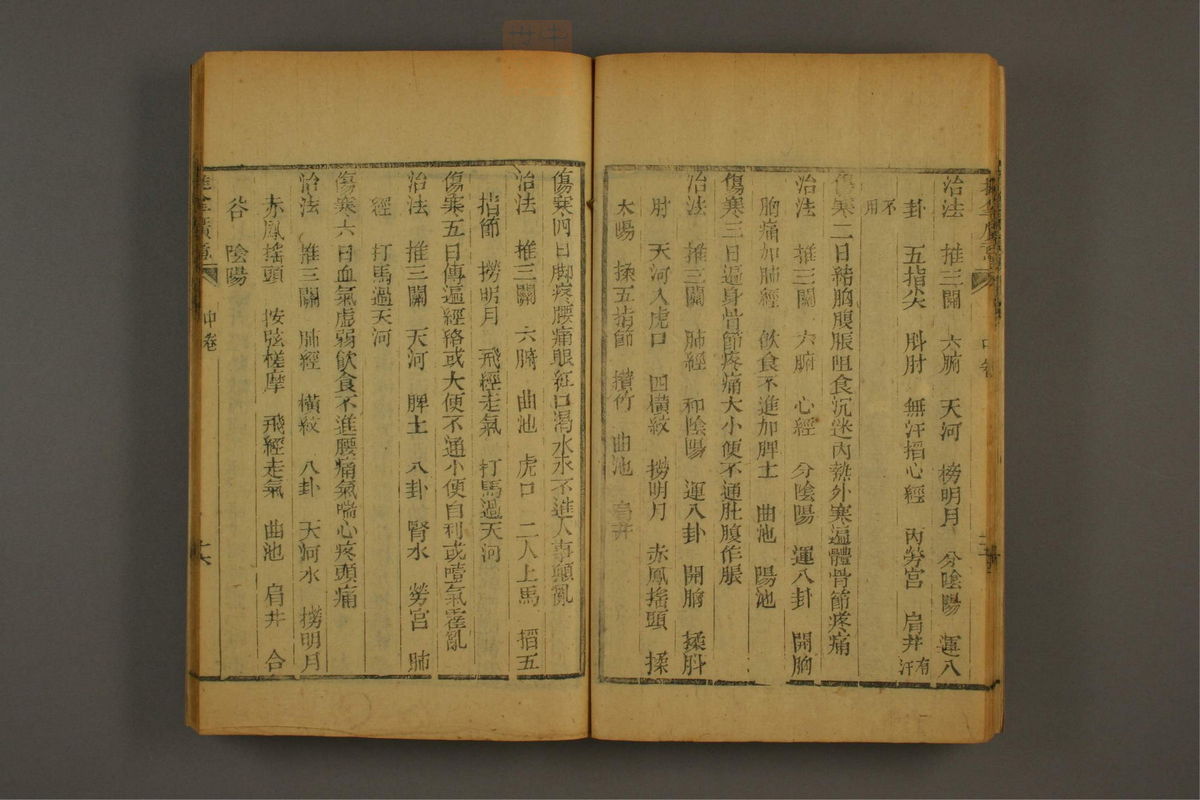 治法 推三關 六腑 天河 撈明月 分陰陽 運八
卦 五指尖 㪷肘 無汗掐心經 內勞宮 肩井有汗
不用
傷寒二日結胸腹脹阻食沉迷內熱外寒遍體骨節疼痛
治法 推三關 六腑 心經 分陰陽 運八卦 開胸
胸痛加肺經 飲食不進加脾土 曲池 陽池
傷寒三日遍身骨節疼痛大小便不通肚腹作脹
治法 推三關 肺經 和陰陽 運八卦 開胸 揉㪷
肘 天河入虎口 四橫紋 撈明月 赤鳳搖頭 揉
太陽 揉五指節 攢竹 曲池 肩井
傷寒四日脚疼腰痛眼紅口渴水水不進人事顛亂
治法 推三關 六腑 曲池 虎口 二人上馬 掐五
指節 撈明月 飛經走氣 打馬過天河
傷寒五日傳遍經絡或大便不通小便自利或噎氣霍亂
治法 推三關 天河 脾土 八卦 腎水 勞宮 肺
經 打馬過天河
傷寒六日血氣虛弱飲食不進腰痛氣喘心疼頭痛
治法 推三關 肺經 橫紋 八卦 天河水 撈明月
赤鳳搖頭 按弦槎摩 飛經走氣 曲池 肩井 合
谷 陰陽
中卷